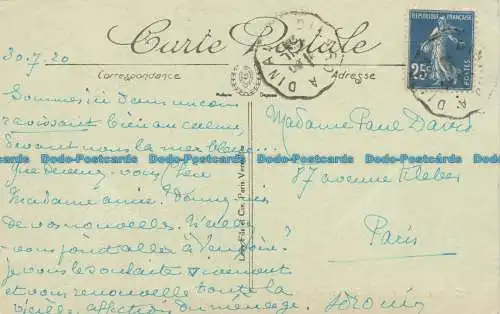 Carte Postale
30.7.20
Correspondance
Adresse
RÉPUBLIQUE FRANÇAISE
25c
POSTES
A DINA
Sommes ici dans un coin
ravissant bien au calme,
devant nous la mer bleue...
Que devenez-vous chère
Madame amie? Donnez-moi
de vos nouvelles.
vous fait aller à
je vous le souhaite vivement
et vous renouvelle toute la
vieille affection du ménage.
Madame Paul Davis
87 avenue Kleber
Paris
Lévy Fils et Cie, Paris
Dodo-Postcards Dodo-Postcards Dodo-Postcards Dodo-Postcards Dodo-Postcards